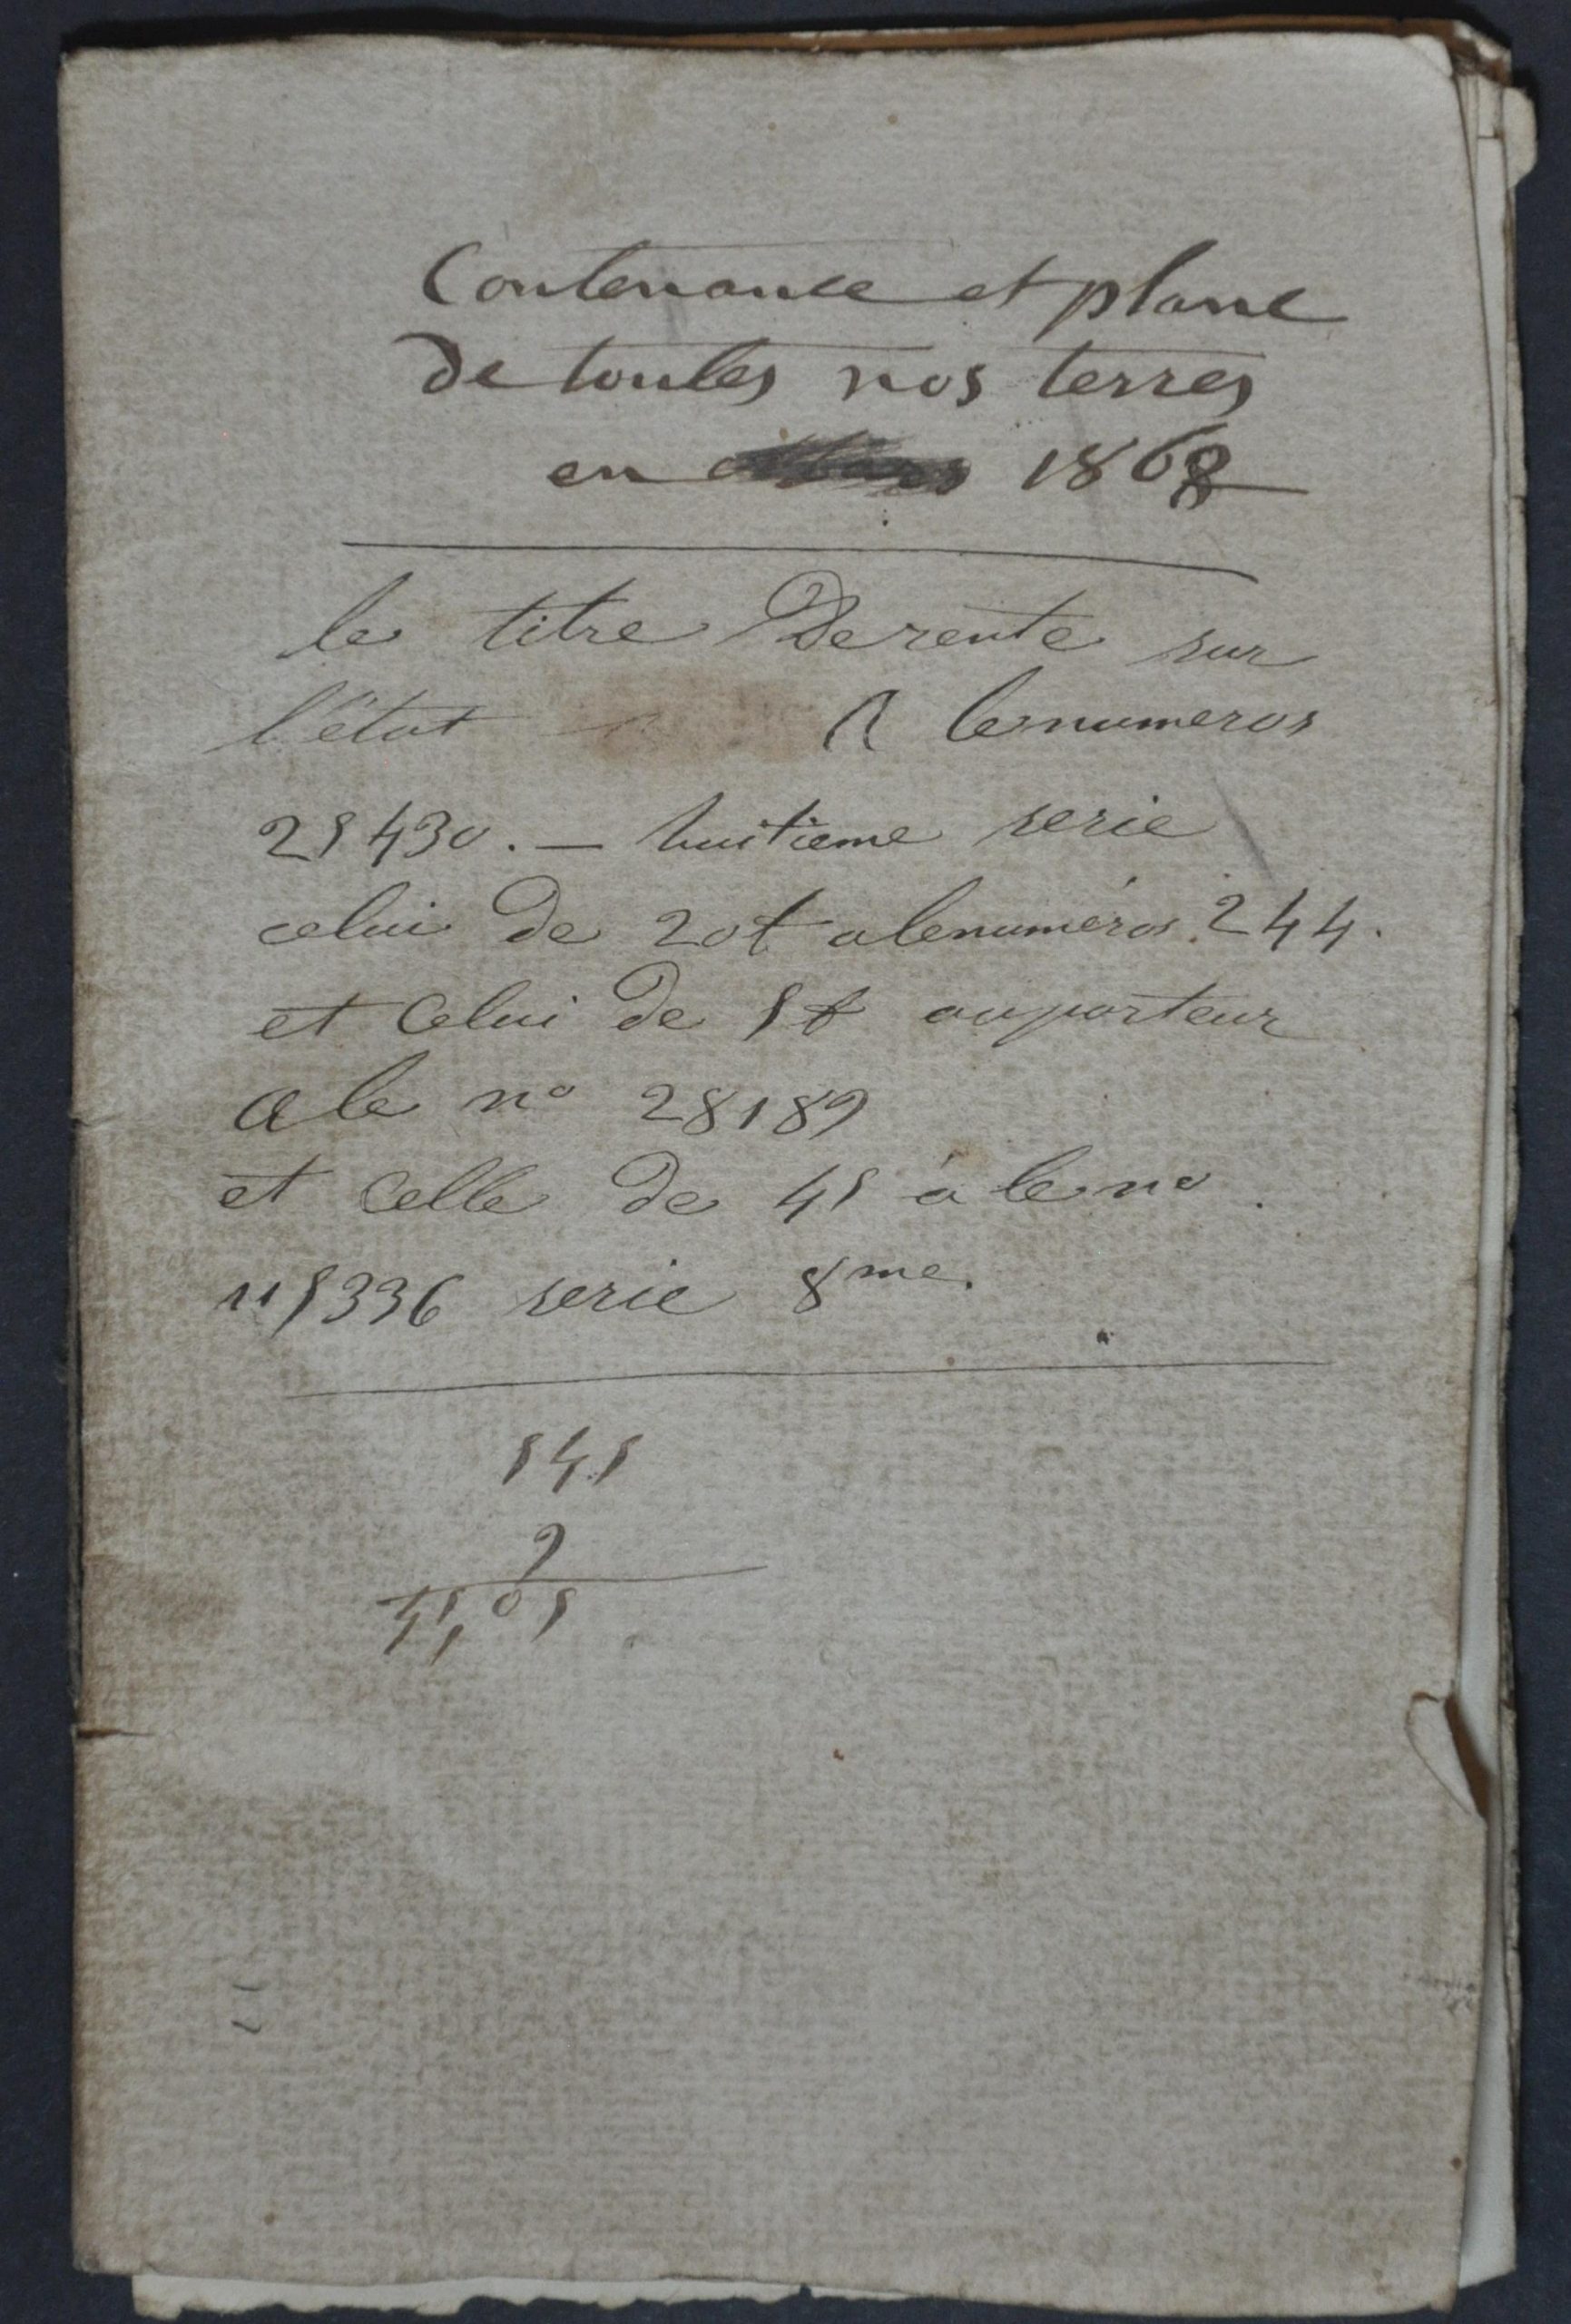 Contenance et plane
de toutes nos terres
en 1868
le titre De rente sur
l'état A le numeros
25430. — huitieme serie
celui de 20f a le numéros 244.
et celui de 5f au porteur
A le no 28189
et celle de 45 à le no
115336 serie 8me.
545
9